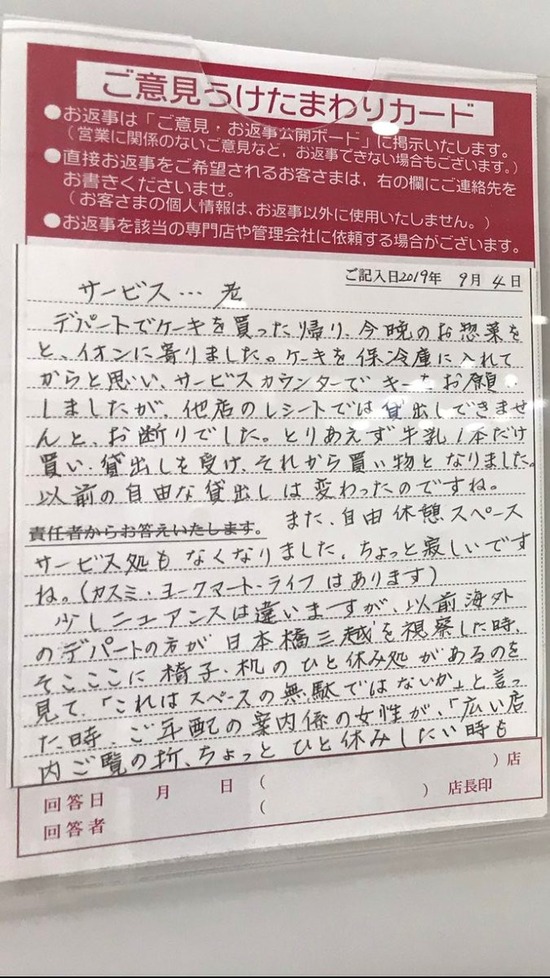 ご意見うけたまわりカード
●お返事は「ご意見・お返事公開ボード」に掲示いたします。
(営業に関係のないご意見など、お返事できない場合もございます。)
●直接お返事をご希望されるお客さまは、右の欄にご連絡先を
お書きくださいませ。
(お客さまの個人情報は、お返事以外に使用いたしません。)
●お返事を該当の専門店や管理会社に依頼する場合がございます。
ご記入日2019年 9月 4日
サービス…
デパートでケーキを買った帰り、今晩のお惣菜を
と、イオンに寄りました。ケーキを保冷庫に入れて
からと思い、サービスカウンターでキーをお願い
しましたが、他店のレシートでは貸出しできませ
んと、お断りでした。とりあえず牛乳1本だけ
買い、貸出しを受け、それから買い物となりました。
以前の自由な貸出しは変わったのですね。
責任者からお答えいたします。 また、自由休憩スペース
サービス処もなくなりました、ちょっと寂しいです
ね。(カスミ・ヨークマート・ライフはあります)
少しニュアンスは違いますが、以前海外
のデパートの方が日本橋三越を視察した時、
そこここに椅子・机のひと休み処があるのを
見て「これはスペースの無駄ではないか」と言っ
た時、ご年配の案内係の女性が、「広い店
内ご覧の折、ちょっとひと休みしたい時も
回答日 月 日 ( )店
回答者 ( ) 店長印